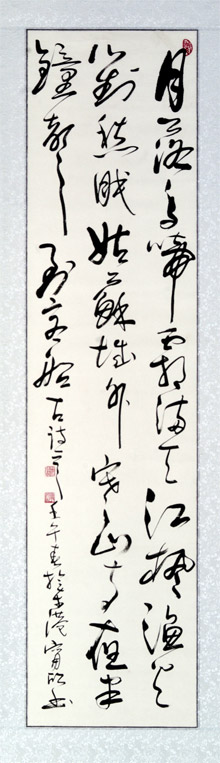 月落烏啼霜滿天江楓漁火
對愁眠姑蘇城外寒山寺夜半
鐘聲到客船 古詩
壬午春於香港 書